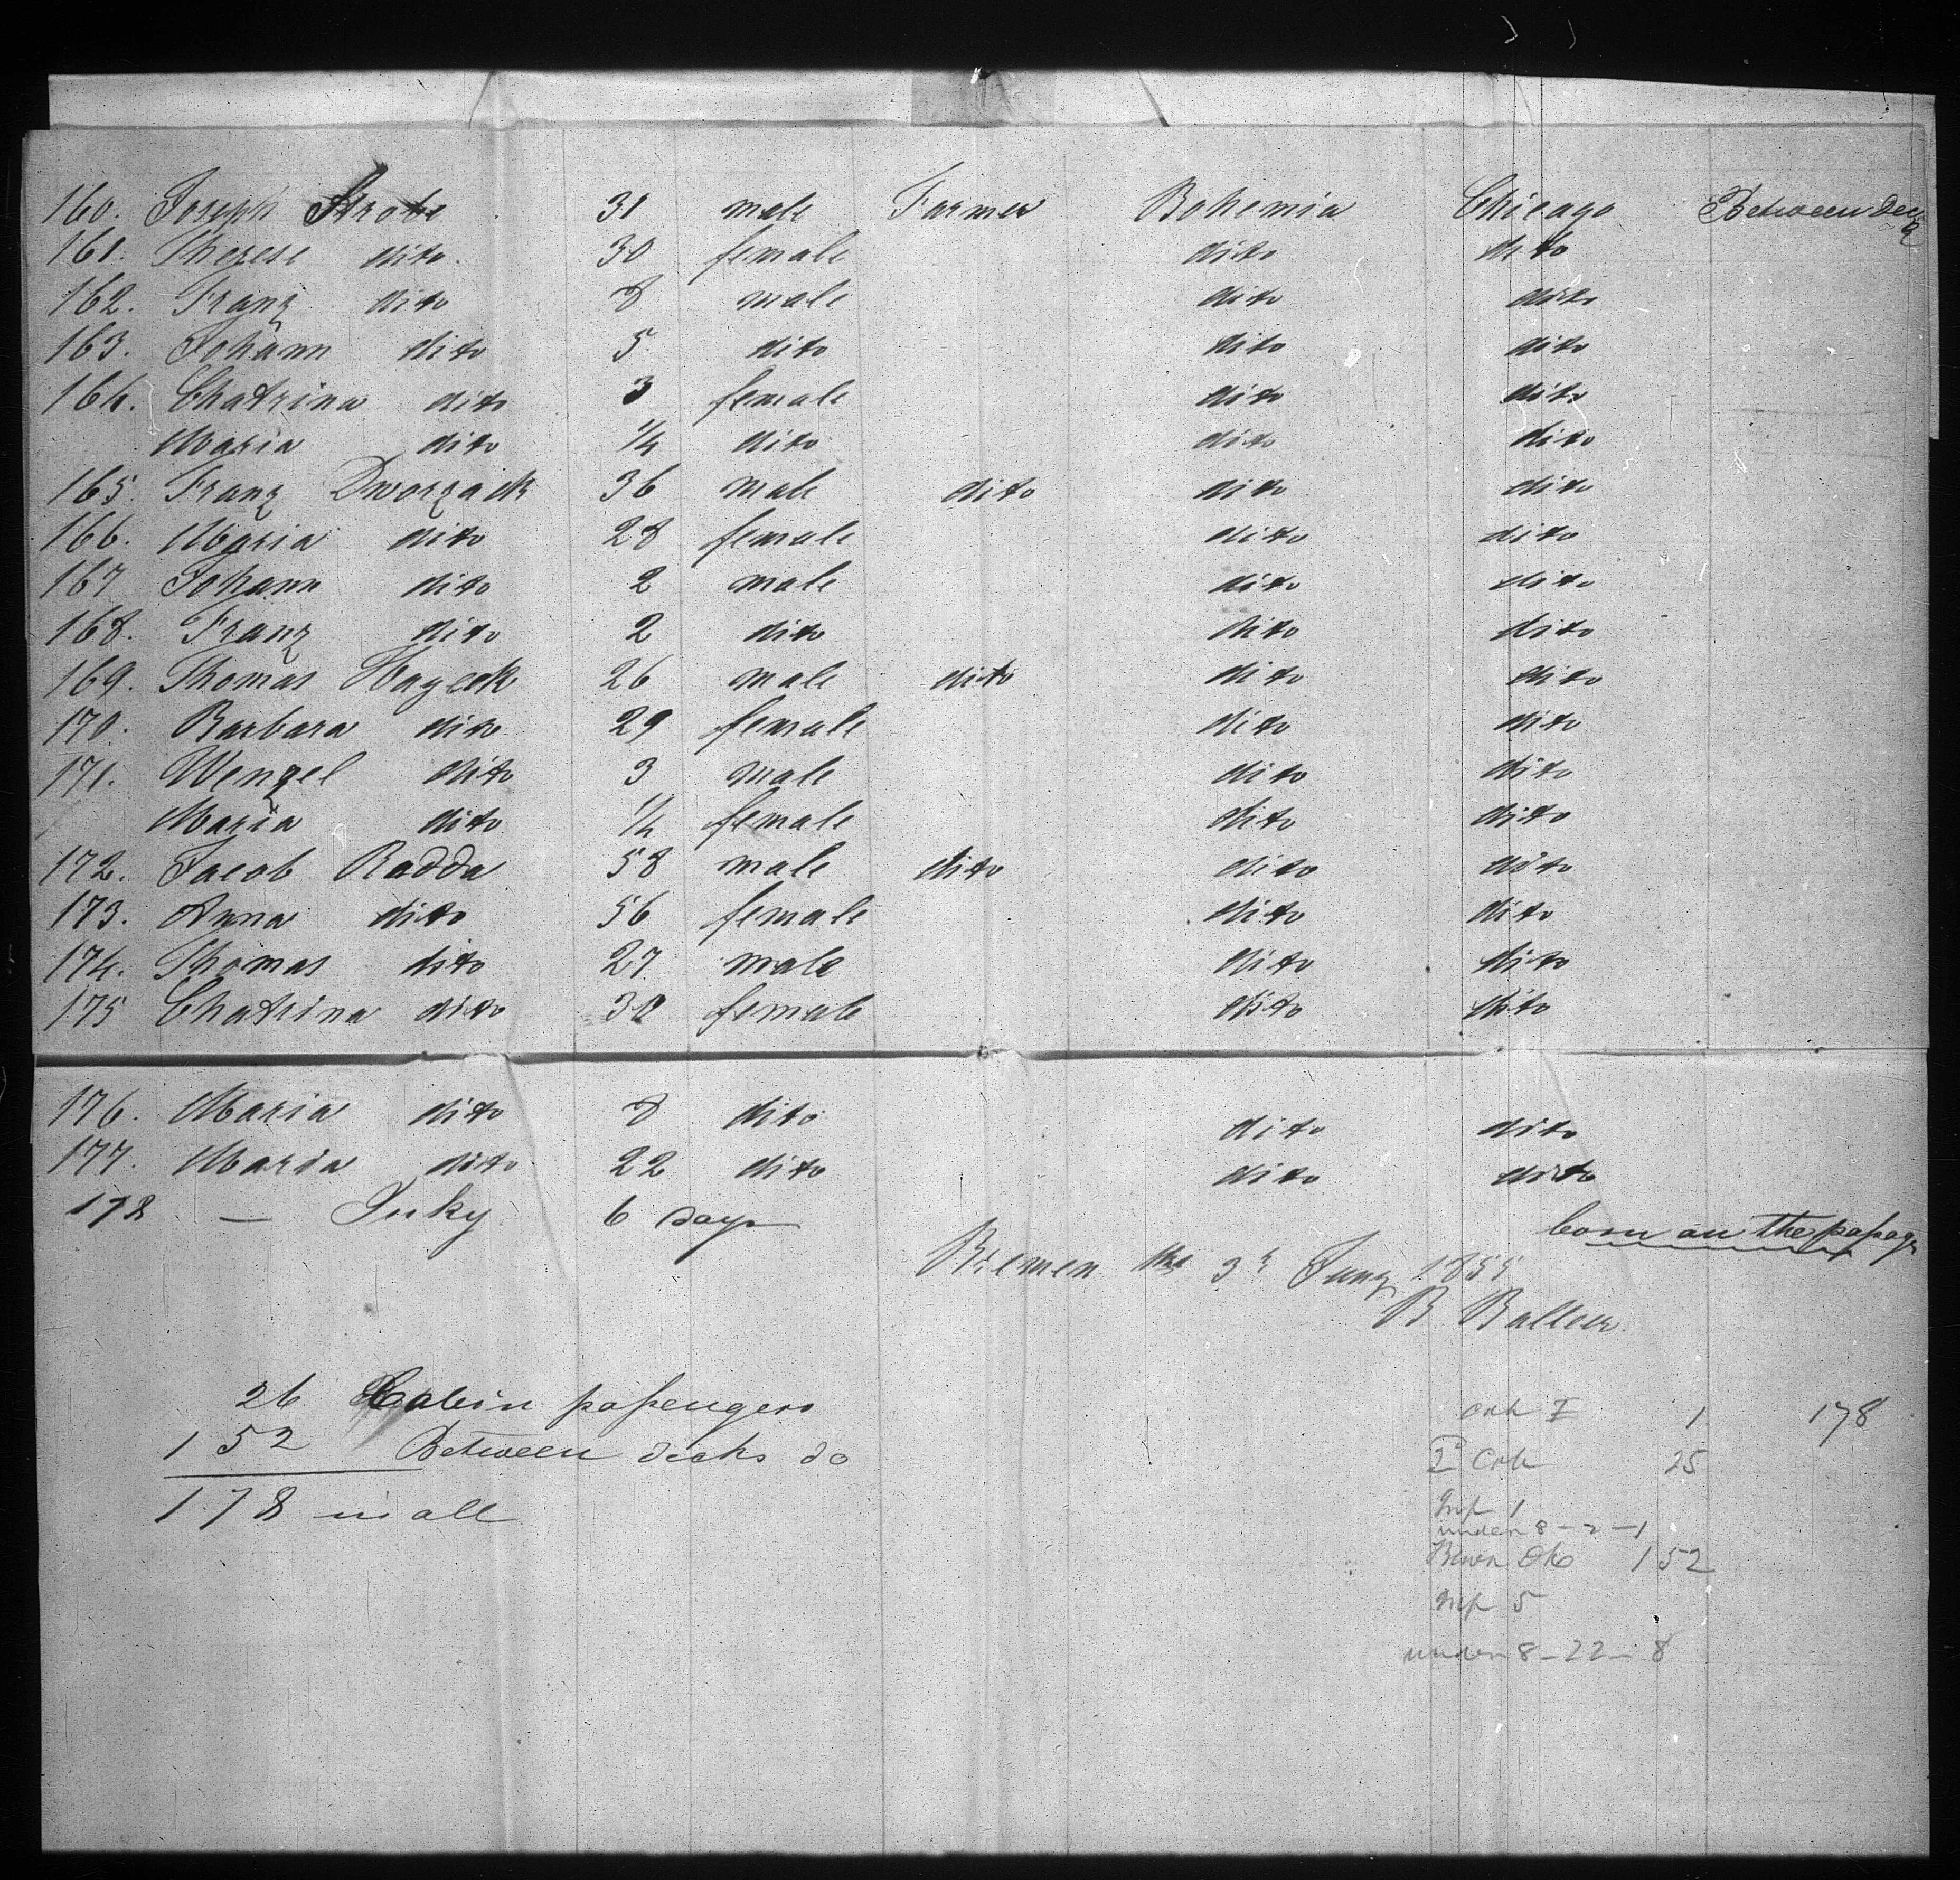 160. Joseph Strobe 31 male Farmer Bohemia Chicago Between deck
161. Therese dito. 30 female dito dito
162. Franz dito 8 male dito dito
163. Johann dito 5 dito dito dito
164. Chatrina dito 3 female dito dito
Maria dito 1/4 dito dito dito
165. Franz Dworzack 36 male dito dito dito
166. Maria dito 28 female dito dito
167 Johann dito 2 male dito dito
168. Franz dito 2 dito dito dito
169. Thomas Hayeck 26 male dito dito dito
170. Barbara dito 29 female dito dito
171. Wenzel dito 3 male dito dito
Maria dito 1/4 female dito dito
172. Jacob Radda 58 male dito dito dito
173. Anna dito 56 female dito dito
174. Thomas dito 27 male dito dito
175 Chatrina dito 30 female dito dito
176. Maria dito 8 dito dito dito
177. Maria dito 22 dito dito dito
178 — Juky 6 days born on the passage
Bremen the 3r Juny 1855
B Balleer.
26 Cabin passengers
152 Between decks do
178 in all
Cab I 1 178
2d Cab 25
Inf 1
under 8 - 2 - 1
Betwen Dk 152
Inf 5
under 8 - 22 - 8